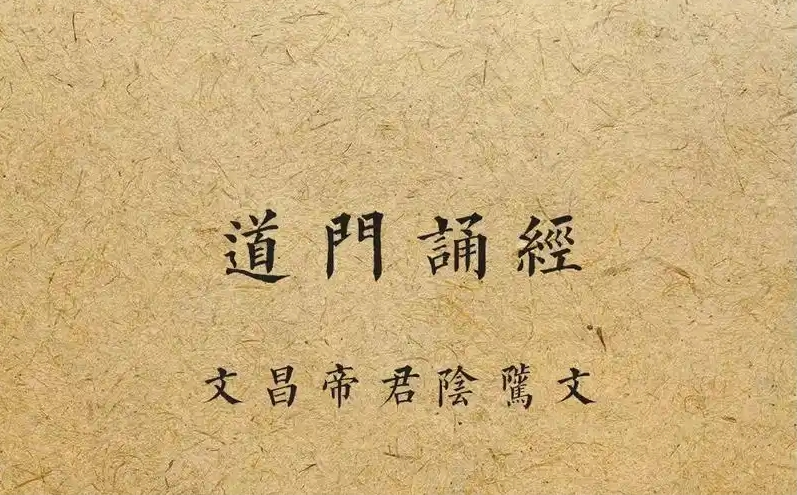 道門誦經
文昌帝君陰騭文